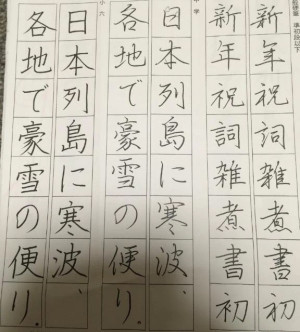 新年祝詞雑煮書初
新年祝詞雑煮書初
中学
日本列島に寒波、
各地で豪雪の便り。
小六
日本列島に寒波、
各地で豪雪の便り。